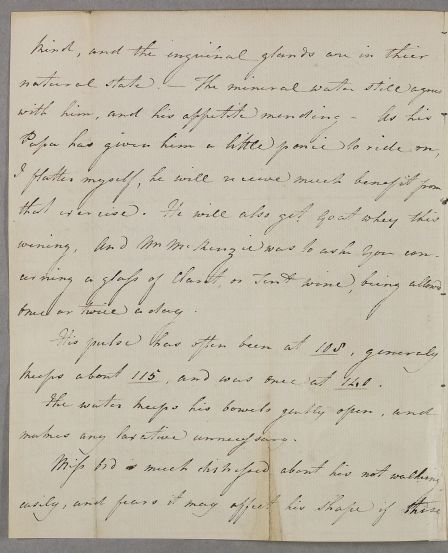 kind, and the inguinal glands are in thier
natural state. — The mineral water still agrees
with him, and his appetite mending - As his
Papa has given him a little ponie to ride on,
I flatter myself, he will receive much benefit from
that exercise. He will also get Goat whey this
evening, And Mr McKinzie was to ask you con-
cerning a glass of Claret, or Tent wine, being allowed
once or twice a day.
His pulse has often been at 108, generaly
keeps about 115, and was once at 120.
The water keeps his bowels gently open, and
makes any laxative unnecessary.
Miss is much distressed about his not walking
easily, and fears it may affect his shape if there